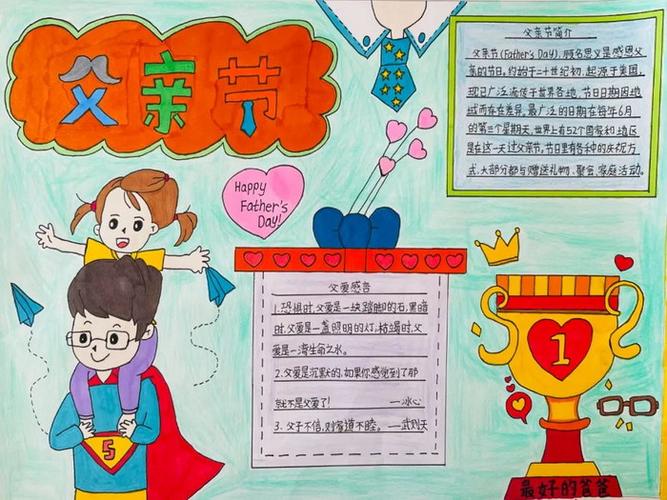 父亲节
父亲节简介
父亲节(Father's Day),顾名思义是感恩父
亲的节日。约始于二十世纪初,起源于美国,
现已广泛流传于世界各地,节日日期因地
域而存在差异。最广泛的日期在每年6月
的第三个星期天,世界上有52个国家和地区
是在这一天过父亲节。节日里有各种的庆祝方
式,大部分都与赠送礼物、聚会、家庭活动。
Happy
Father's
Day!
父爱感言
1.恐惧时,父爱是一块踏脚的石;黑暗
时,父爱是一盏照明的灯;枯竭时,父
爱是一湾生命之水。
2.父爱是沉默的,如果你感觉到了那
就不是父爱了! —冰心
3.父子不信,则家道不睦。 —武则天
5
1
最好的爸爸